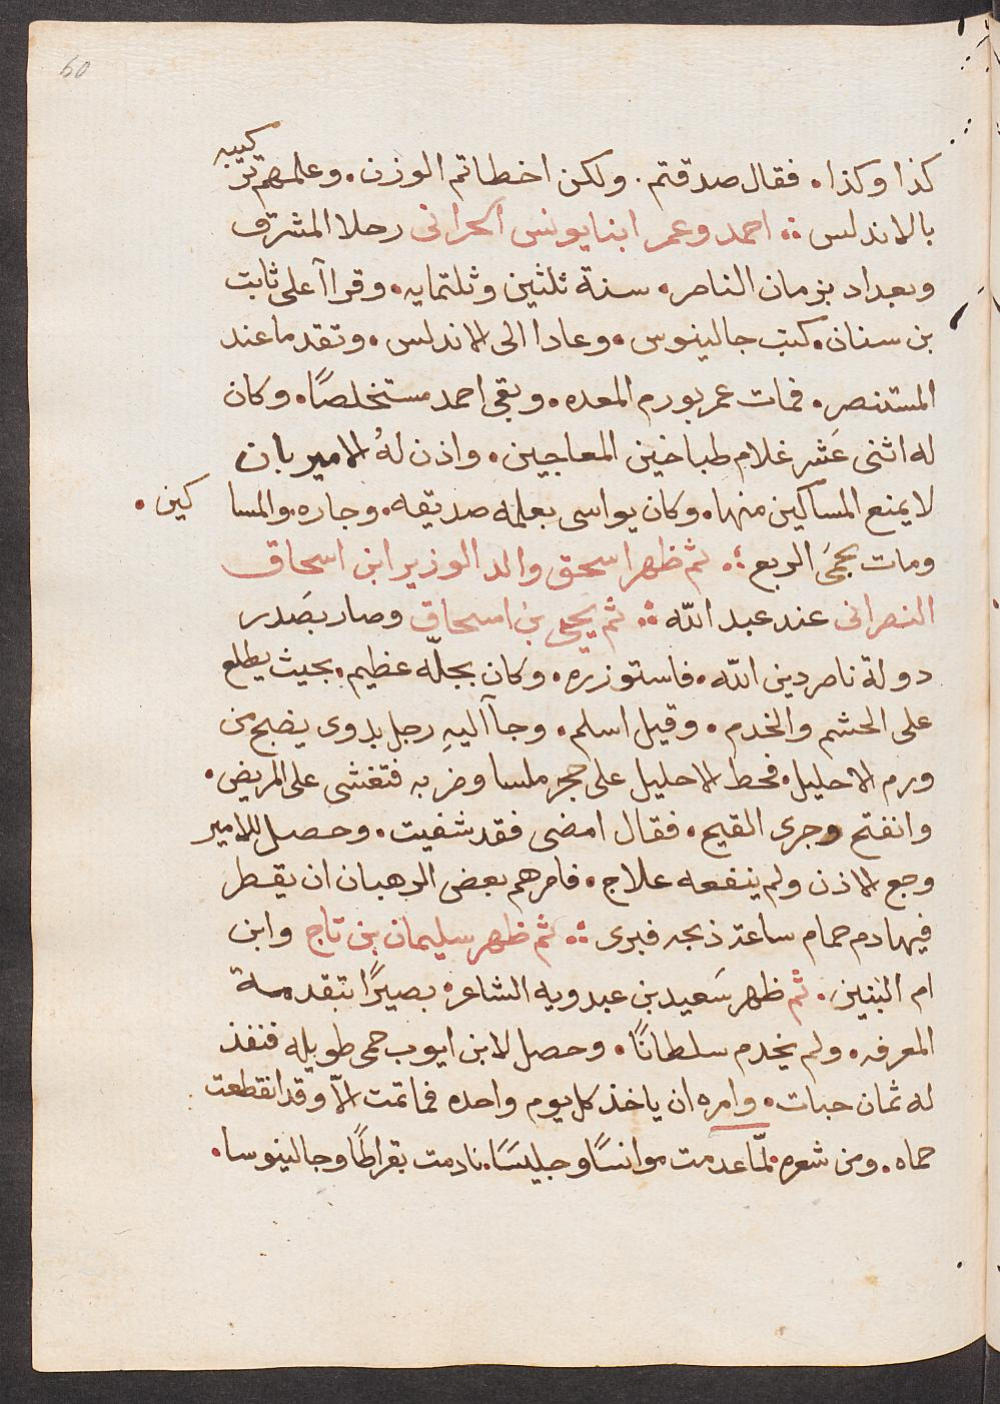 60
كذا وكذا. فقال صدقتم. ولكن اخطاتم الوزن. وعلمهم تركيبه
بالاندلس ؞ احمد وعمر ابنا يونس الحرانى رحلا المشرق
وبغداد بزمان الناصر. سنة ثلثين وثلثمايه. وقراآ على ثابت
بن سنان. كتب جالينوس. وعادا الى الاندلس. وتقدما عند
المستنصر. فمات عمر بورم المعده. وبقى احمد مستخلصًا. وكان
له اثنى عَشر غلام طباخين المعاجين. واذن لهُ الامير بان
لا يمنع المساكين منها. وكان يواسى بعلمه صديقه. وجاره. والمساكين.
ومات بحمىَ الربع ؞ ثم ظهر اسحق والد الوزير ابن اسحاق
النصرانى عند عبد الله ؞ ثم يحيى بن اسحاق وصار بصَدر
دولة ناصر دين الله. فاستوزره. وكان بجلّه عظيم. بحيث يطلع
على الحشم والخدم. وقيل اسلم. وجاآ اليهِ رجل بدوى يضج من
ورم الاحليل. فحط الاحليل على حجر ملسا وضربه فتغشى على المريض.
وانفتح وجرى القيح. فقال امضى فقد شفيت. وحصل للامير
وجع الاذن ولم ينفعه علاج. فامرهم بعض الرهبان ان يقطر
فيها دم حمام ساعة ذبحه فبرى ؞ ثم ظهر سليمان بن تاج وابن
ام البنين. ثم ظهر سَعيد بن عبدويه الشاعر. بصيرًا بتقدمة
المعرفه. ولم يخدم سلطانًا. وحصل لابن ايوب حمى طويله فنفذ
له ثمان حبات. وامره ان ياخذ كل يوم واحده فما تمت الاّ وقد انقطعت
حماه. ومن شعره. لمّا عدمت موانسًا وجليسَا. نادمت بقراطًا وجالينوسا.